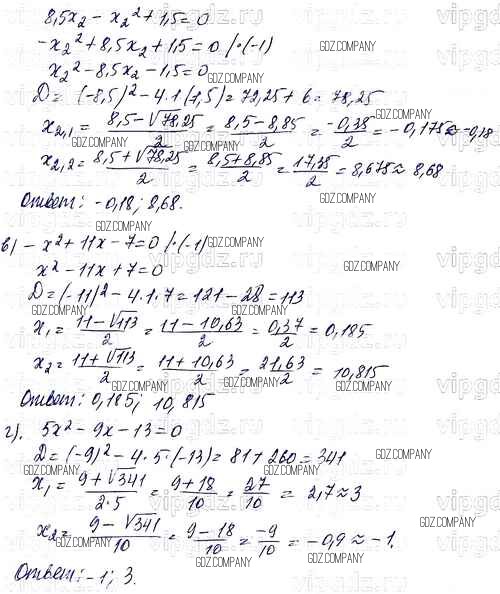 8,5x₂ - x₂² + 1,5 = 0
-x₂² + 8,5x₂ + 1,5 = 0 / ·(-1)
x₂² - 8,5x₂ - 1,5 = 0
D = (-8,5)² - 4·1·(1,5) = 72,25 + 6 = 78,25
x₂,₁ = (8,5 - √78,25)/2 = (8,5 - 8,85)/2 = (-0,35)/2 = -0,175 ≈ -0,18
x₂,₂ = (8,5 + √78,25)/2 = (8,5 + 8,85)/2 = 17,35/2 = 8,675 ≈ 8,68
Ответ: -0,18; 8,68.
в) -x² + 11x - 7 = 0 / ·(-1)
x² - 11x + 7 = 0
D = (-11)² - 4·1·7 = 121 - 28 = 113
x₁ = (11 - √113)/2 = (11 - 10,63)/2 = 0,37/2 = 0,185
x₂ = (11 + √113)/2 = (11 + 10,63)/2 = 21,63/2 = 10,815
Ответ: 0,185; 10,815
г). 5x² - 9x - 13 = 0
D = (-9)² - 4·5·(-13) = 81 + 260 = 341
x₁ = (9 + √341)/(2·5) = (9 + 18)/10 = 27/10 = 2,7 ≈ 3
x₂ = (9 - √341)/10 = (9 - 18)/10 = -9/10 = -0,9 ≈ -1.
Ответ: -1; 3.